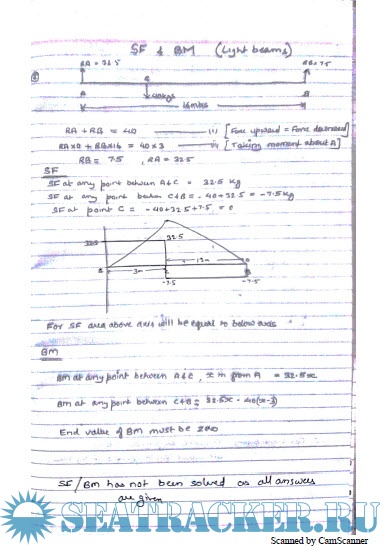 SF & BM (Light beams)
RA = 32.5
RB = 7.5
C
A
40kgs
B
16mtrs
RA + RB = 40 — (i) [Force upward = Force downward]
RA×0 + RB×16 = 40×3 — (ii) [Taking moment about A]
RB = 7.5 , RA = 32.5
SF
SF at any point between A&C = 32.5 kg
SF at any point between C&B = -40+32.5 = -7.5kg
SF at point C = -40+32.5+7.5 = 0
32.5
32.5
13m
3m
-7.5
-7.5
For SF area above axis will be equal to below axis
BM
BM at any point between A&C, x m from A = 32.5x
BM at any point between C&B = 32.5x - 40(x-3)
End value of BM must be zero
SF/BM has not been solved as all answers
are given
SEATRACKER.RU
Scanned by CamScanner